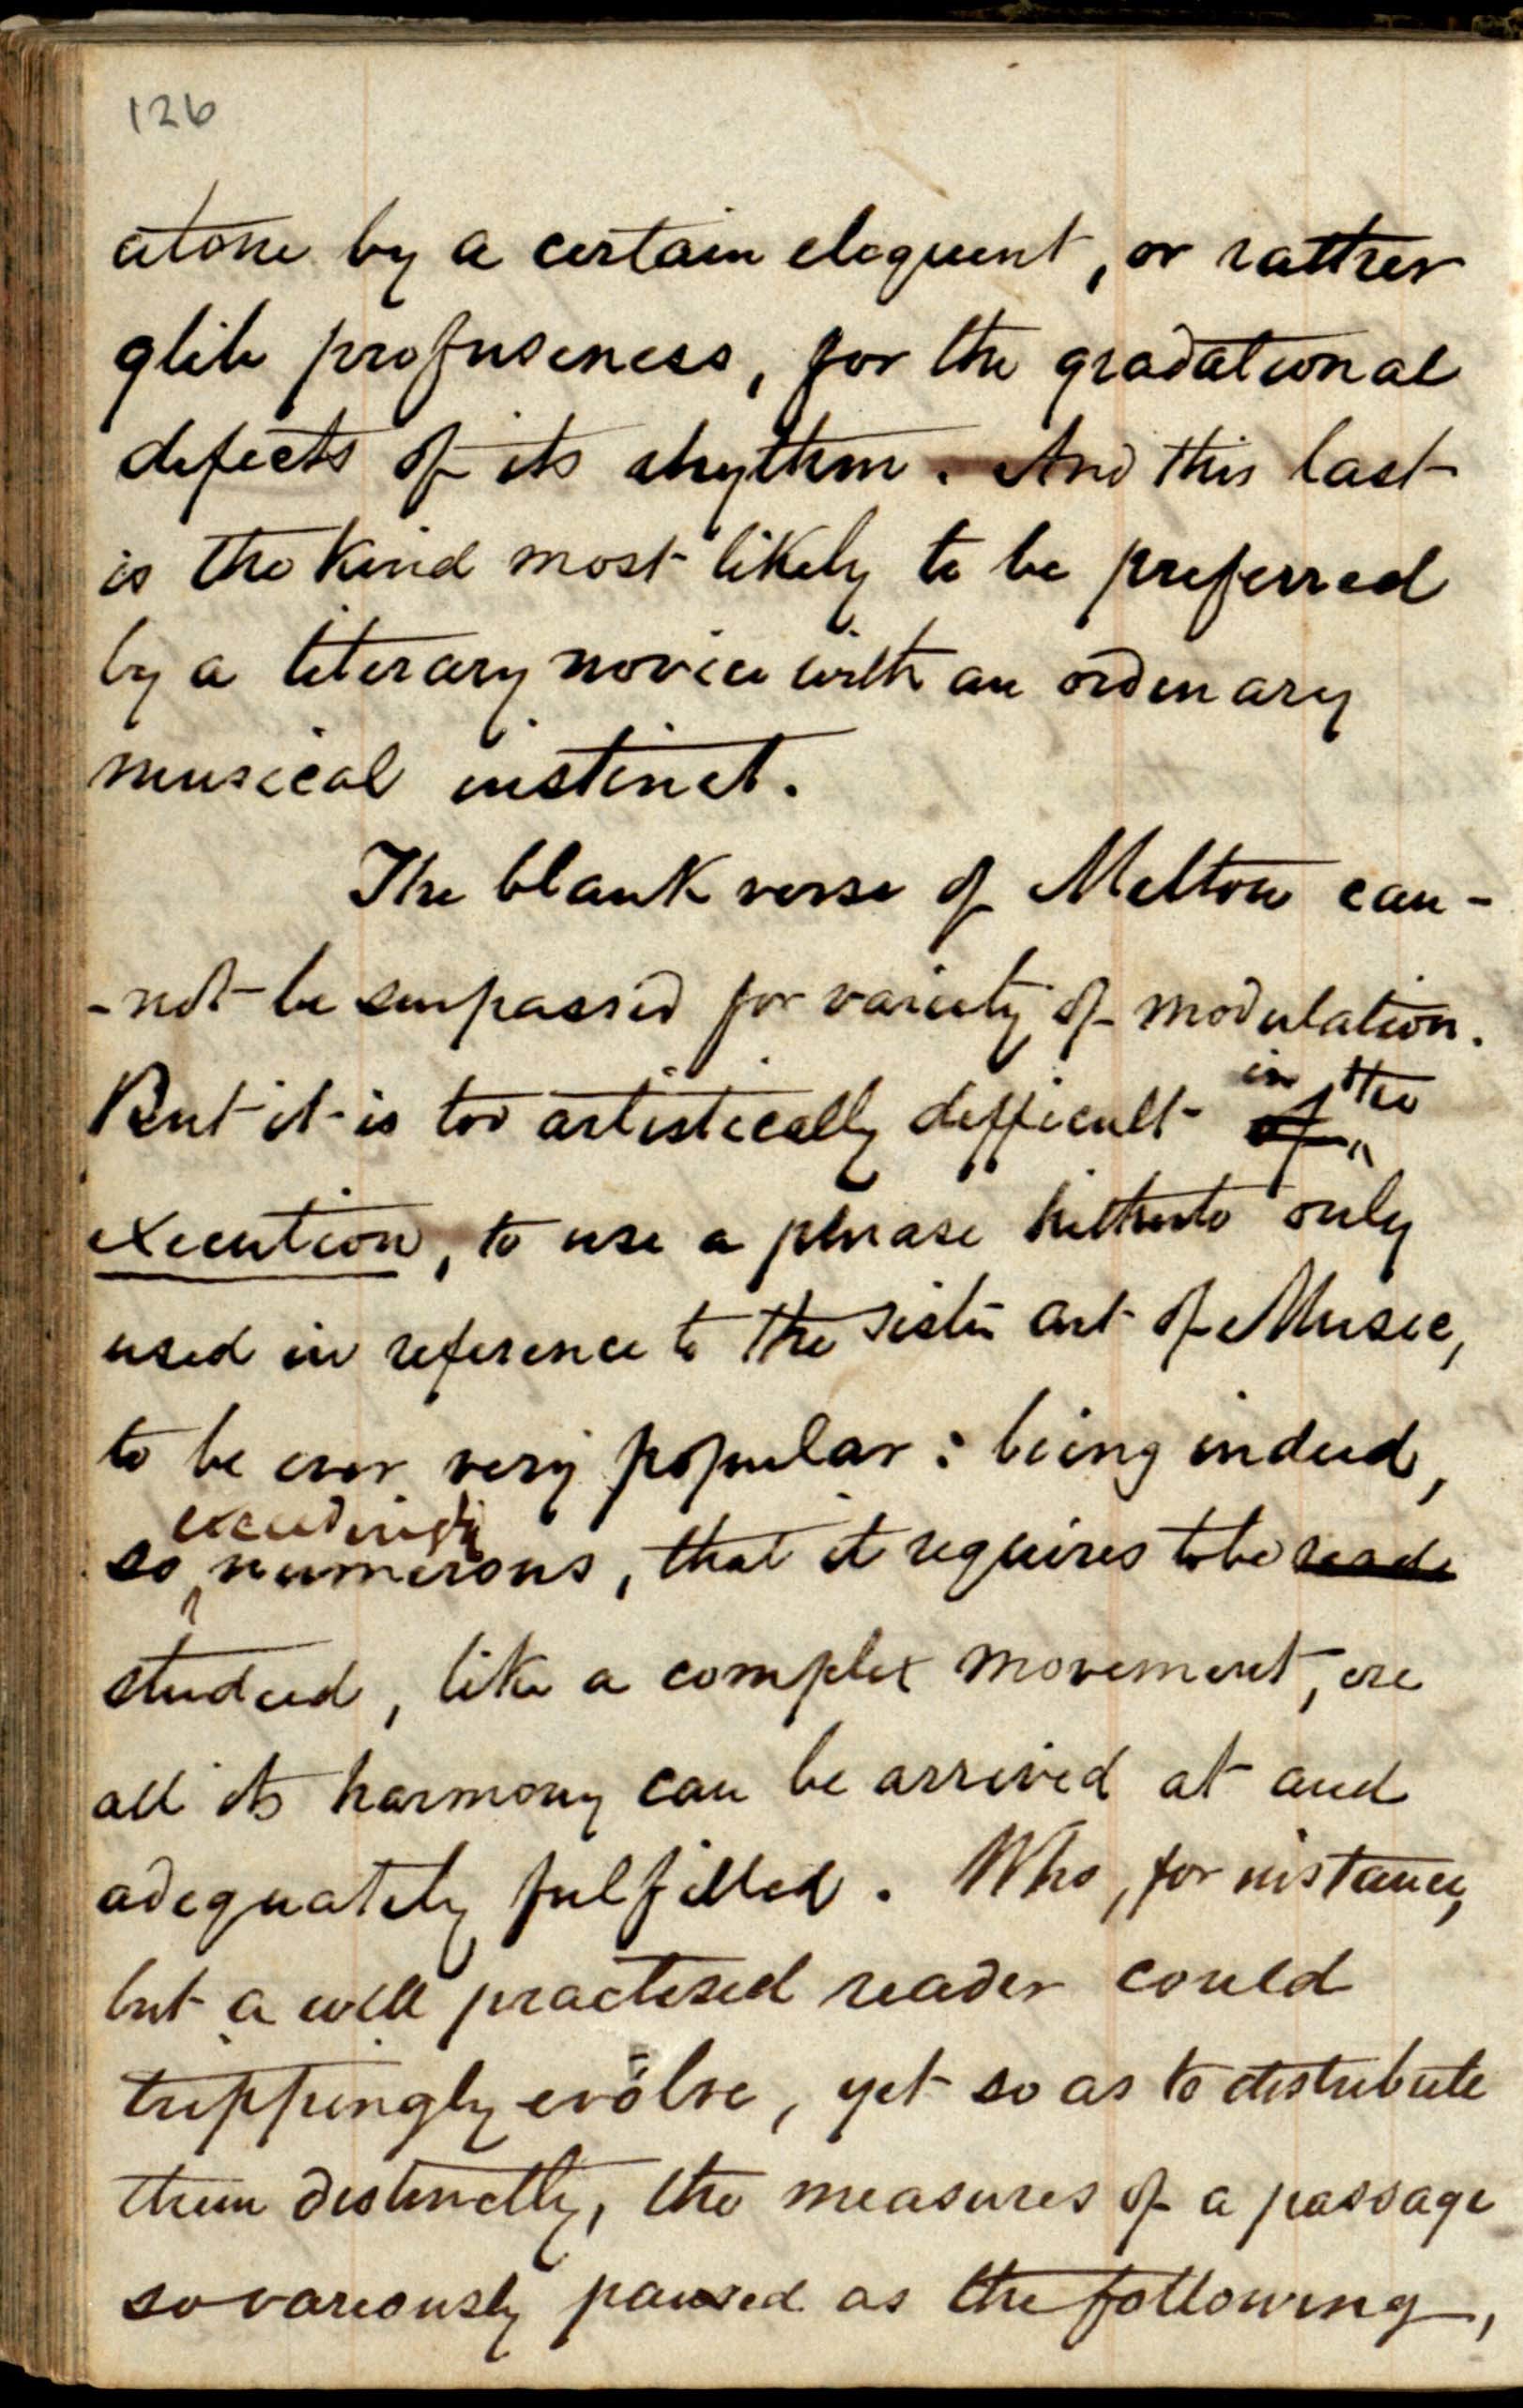 126
atone by a certain eloquent, or rather
glib profuseness, for the gradational
defects of its rhythm. And this last
is the kind most likely to be preferred
by a literary novice with an ordinary
musical instinct.
The blank verse of Milton can-
-not be surpassed for variety of modulation.
in the
But it is too artistically difficult of
execution, to use a phrase hitherto only
used in reference to the sister art of Music,
to be ever very popular: being indeed,
exceedingly
so numerous, that it requires to be read
studied, like a complex movement, ere
all its harmony can be arrived at and
adequately fulfilled. Who, for instance,
but a well practised reader could
trippingly evolve, yet so as to distribute
them distinctly, the measures of a passage
so variously paused as the following,